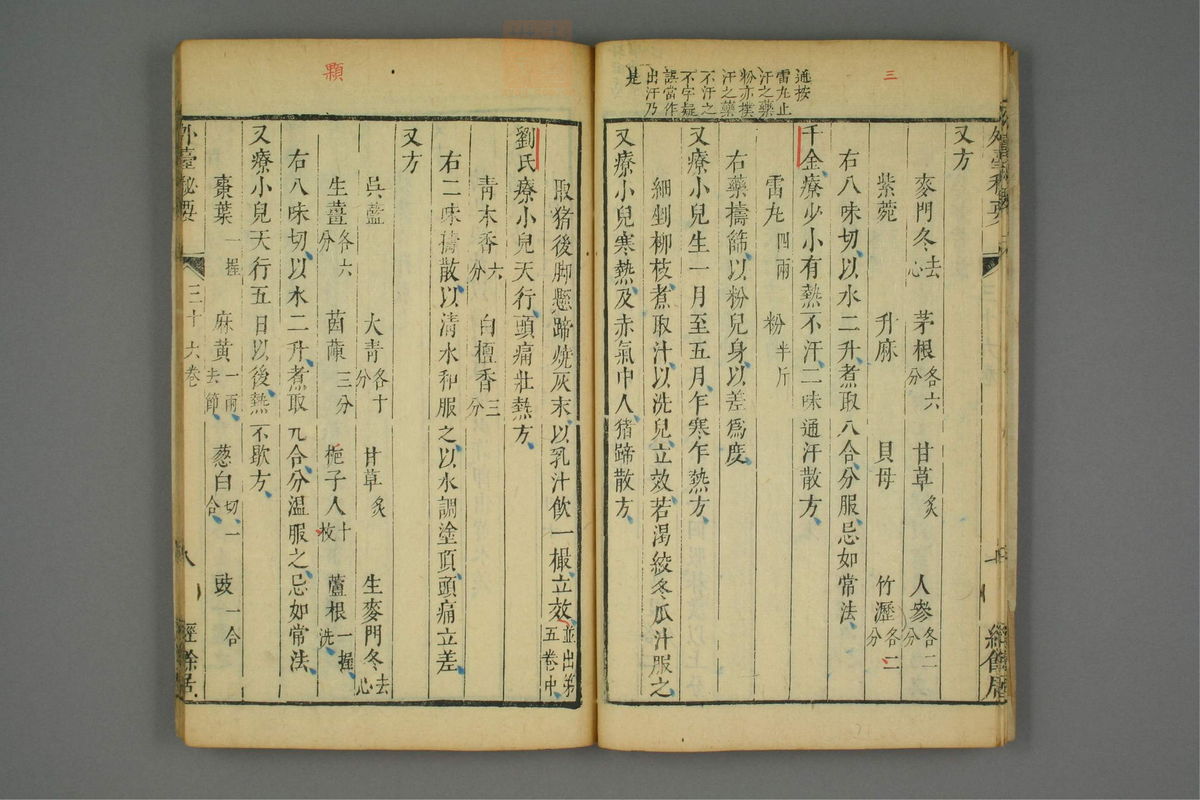 三
外臺秘要
經餘居
又方
麥門冬去心 茅根各六分 甘草炙 人參各二分
紫菀 升麻 貝母 竹瀝各二分
右八味切以水二升煮取八合分服忌如常法
千金療少小有熱不汗二味通汗散方
雷丸四兩 粉半斤
右藥擣篩以粉兒身以差爲度
又療小兒生一月至五月乍寒乍熱方
細剉柳枝煮取汁以洗兒立效若渴絞冬瓜汁服之
又療小兒寒熱及赤氣中人猪蹄散方
通按
雷丸止
汗之藥
粉亦撲
汗之藥
不汗之
不字疑
誤當作
出汗乃
是
取猪後脚懸蹄燒灰末以乳汁飲一撮立效並出第五卷中
劉氏療小兒天行頭痛壯熱方
青木香六分 白檀香三分
右二味擣散以清水和服之以水調塗頂頭痛立差
又方
吳藍 大青各十分 甘草炙 生麥門冬去心
生薑各六分 茵蔯三分 梔子人十枚 蘆根一握洗
右八味切以水二升煮取九合分溫服之忌如常法
又療小兒天行五日以後熱不歇方
棗葉一握 麻黃一兩去節 葱白切一合 豉一合
外臺秘要 三十六卷 八 經餘居
顆